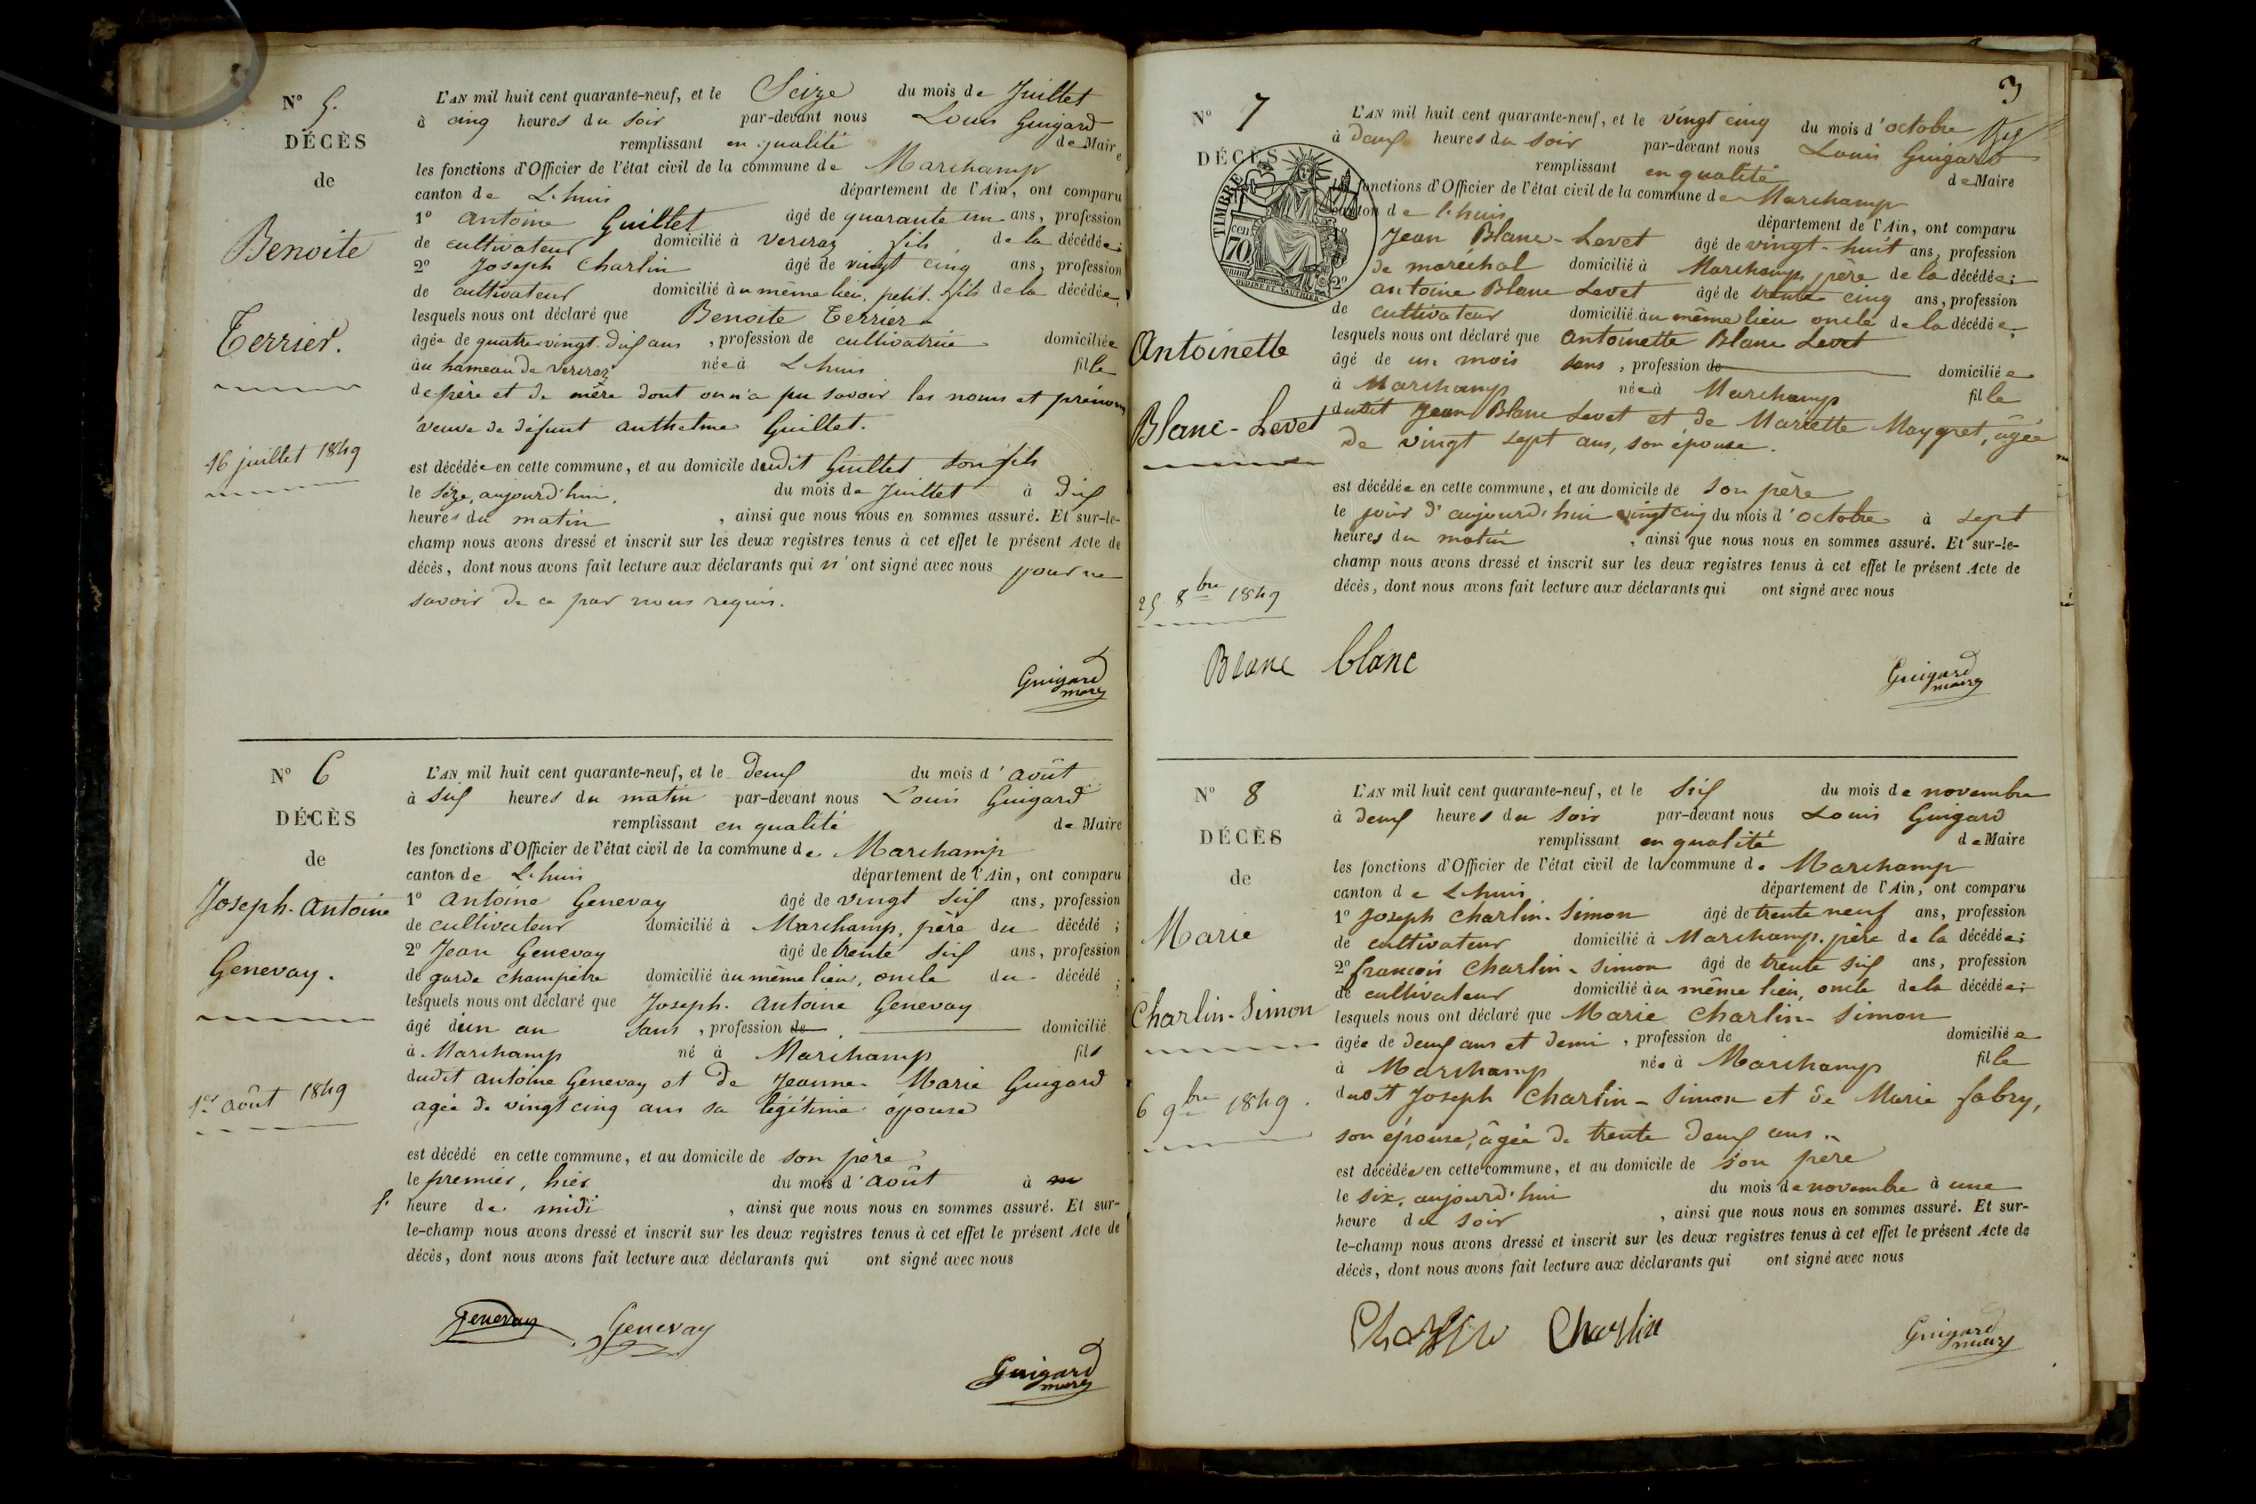 N° 5.
DÉCÈS
de
Benoite
Terrier.
16 juillet 1849
L'AN mil huit cent quarante-neuf, et le Seize du mois de Juillet
à cinq heures du soir par-devant nous Louis Guigard
remplissant en qualité de Maire
les fonctions d'Officier de l'état civil de la commune de Marchamp
canton de L'huis département de l'Ain, ont comparu
1° antoine Guillet âgé de quarante un ans, profession
de cultivateur domicilié à fils de la décédée;
2° Joseph Charlin âgé de vingt cinq ans, profession
de cultivateur domicilié au même lieu, petit-fils de la décédée,
lesquels nous ont déclaré que Benoite Terrier
âgée de quatre-vingt-dix ans, profession de cultivatrice domiciliée
au hameau de née à L'huis fille
de père et de mère dont on n'a pu savoir les noms et prénoms
veuve de défunt anthelme Guillet.
est décédée en cette commune, et au domicile dudit Guillet son fils
le seize, aujourd'hui, du mois de Juillet à dix
heures du matin, ainsi que nous nous en sommes assuré. Et sur-le-
champ nous avons dressé et inscrit sur les deux registres tenus à cet effet le présent Acte de
décès, dont nous avons fait lecture aux déclarants qui n'ont signé avec nous pour ne
savoir de ce par nous requis.
Guigard
maire
N° 6
DÉCÈS
de
Joseph-Antoine
Genevay.
1er août 1849
L'AN mil huit cent quarante-neuf, et le deux du mois d'août
à six heures du matin par-devant nous Louis Guigard
remplissant en qualité de Maire
les fonctions d'Officier de l'état civil de la commune de Marchamp
canton de L'huis département de l'Ain, ont comparu
1° Antoine Genevay âgé de vingt six ans, profession
de cultivateur domicilié à Marchamp, père du décédé;
2° Jean Genevay âgé de trente six ans, profession
de garde champêtre domicilié au même lieu, oncle du décédé;
lesquels nous ont déclaré que Joseph-Antoine Genevay
âgé d'un an sans, profession de domicilié
à Marchamp né à Marchamp fils
dudit antoine Genevay et de Jeanne-Marie Guigard
agée de vingt cinq ans sa légitime épouse
est décédé en cette commune, et au domicile de son père
le premier, hier du mois d'août à
heure de midi, ainsi que nous nous en sommes assuré. Et sur-
le-champ nous avons dressé et inscrit sur les deux registres tenus à cet effet le présent Acte de
décès, dont nous avons fait lecture aux déclarants qui ont signé avec nous
Genevay Genevay
Guigard
maire
3
N° 7
DÉCÈS
TIMBRE
70
cen
Antoinette
Blanc-Levet
25 8bre 1849
L'AN mil huit cent quarante-neuf, et le vingt cinq du mois d'octobre
à deux heures du soir par-devant nous Louis Guigard
remplissant en qualité de Maire
les fonctions d'Officier de l'état civil de la commune de Marchamp
canton de l'huis département de l'Ain, ont comparu
Jean Blanc-Levet âgé de vingt-huit ans, profession
de maréchal domicilié à Marchamp, père de la décédée;
2° antoine Blanc Levet âgé de trente cinq ans, profession
de cultivateur domicilié au même lieu oncle de la décédée,
lesquels nous ont déclaré que antoinette Blanc Levet
âgé de un mois sans, profession de domiciliée
à Marchamp née à Marchamp fille
dudit Jean Blanc Levet et de Mariette Maygret, âgée
de vingt sept ans, son épouse.
est décédée en cette commune, et au domicile de son père
le jour d'aujourd'hui vingt cinq du mois d'octobre à sept
heures du matin, ainsi que nous nous en sommes assuré. Et sur-le-
champ nous avons dressé et inscrit sur les deux registres tenus à cet effet le présent Acte de
décès, dont nous avons fait lecture aux déclarants qui ont signé avec nous
Blanc blanc
Guigard
maire
N° 8
DÉCÈS
de
Marie
Charlin-Simon
6 9bre 1849.
L'AN mil huit cent quarante-neuf, et le six du mois de novembre
à deux heures du soir par-devant nous Louis Guigard
remplissant en qualité de Maire
les fonctions d'Officier de l'état civil de la commune de Marchamp
canton de L'huis département de l'Ain, ont comparu
1° Joseph Charlin-Simon âgé de trente neuf ans, profession
de cultivateur domicilié à Marchamp, père de la décédée;
2° françois Charlin-Simon âgé de trente six ans, profession
de cultivateur domicilié au même lieu, oncle de la décédée;
lesquels nous ont déclaré que Marie Charlin-Simon
âgée de deux ans et demi, profession de domiciliée
à Marchamp née à Marchamp fille
dudit Joseph Charlin-Simon et de Marie fabry,
son épouse, âgée de trente deux ans
est décédée en cette commune, et au domicile de son père
le six, aujourd'hui du mois de novembre à une
heure du soir, ainsi que nous nous en sommes assuré. Et sur-
le-champ nous avons dressé et inscrit sur les deux registres tenus à cet effet le présent Acte de
décès, dont nous avons fait lecture aux déclarants qui ont signé avec nous
Charlin
Guigard
maire